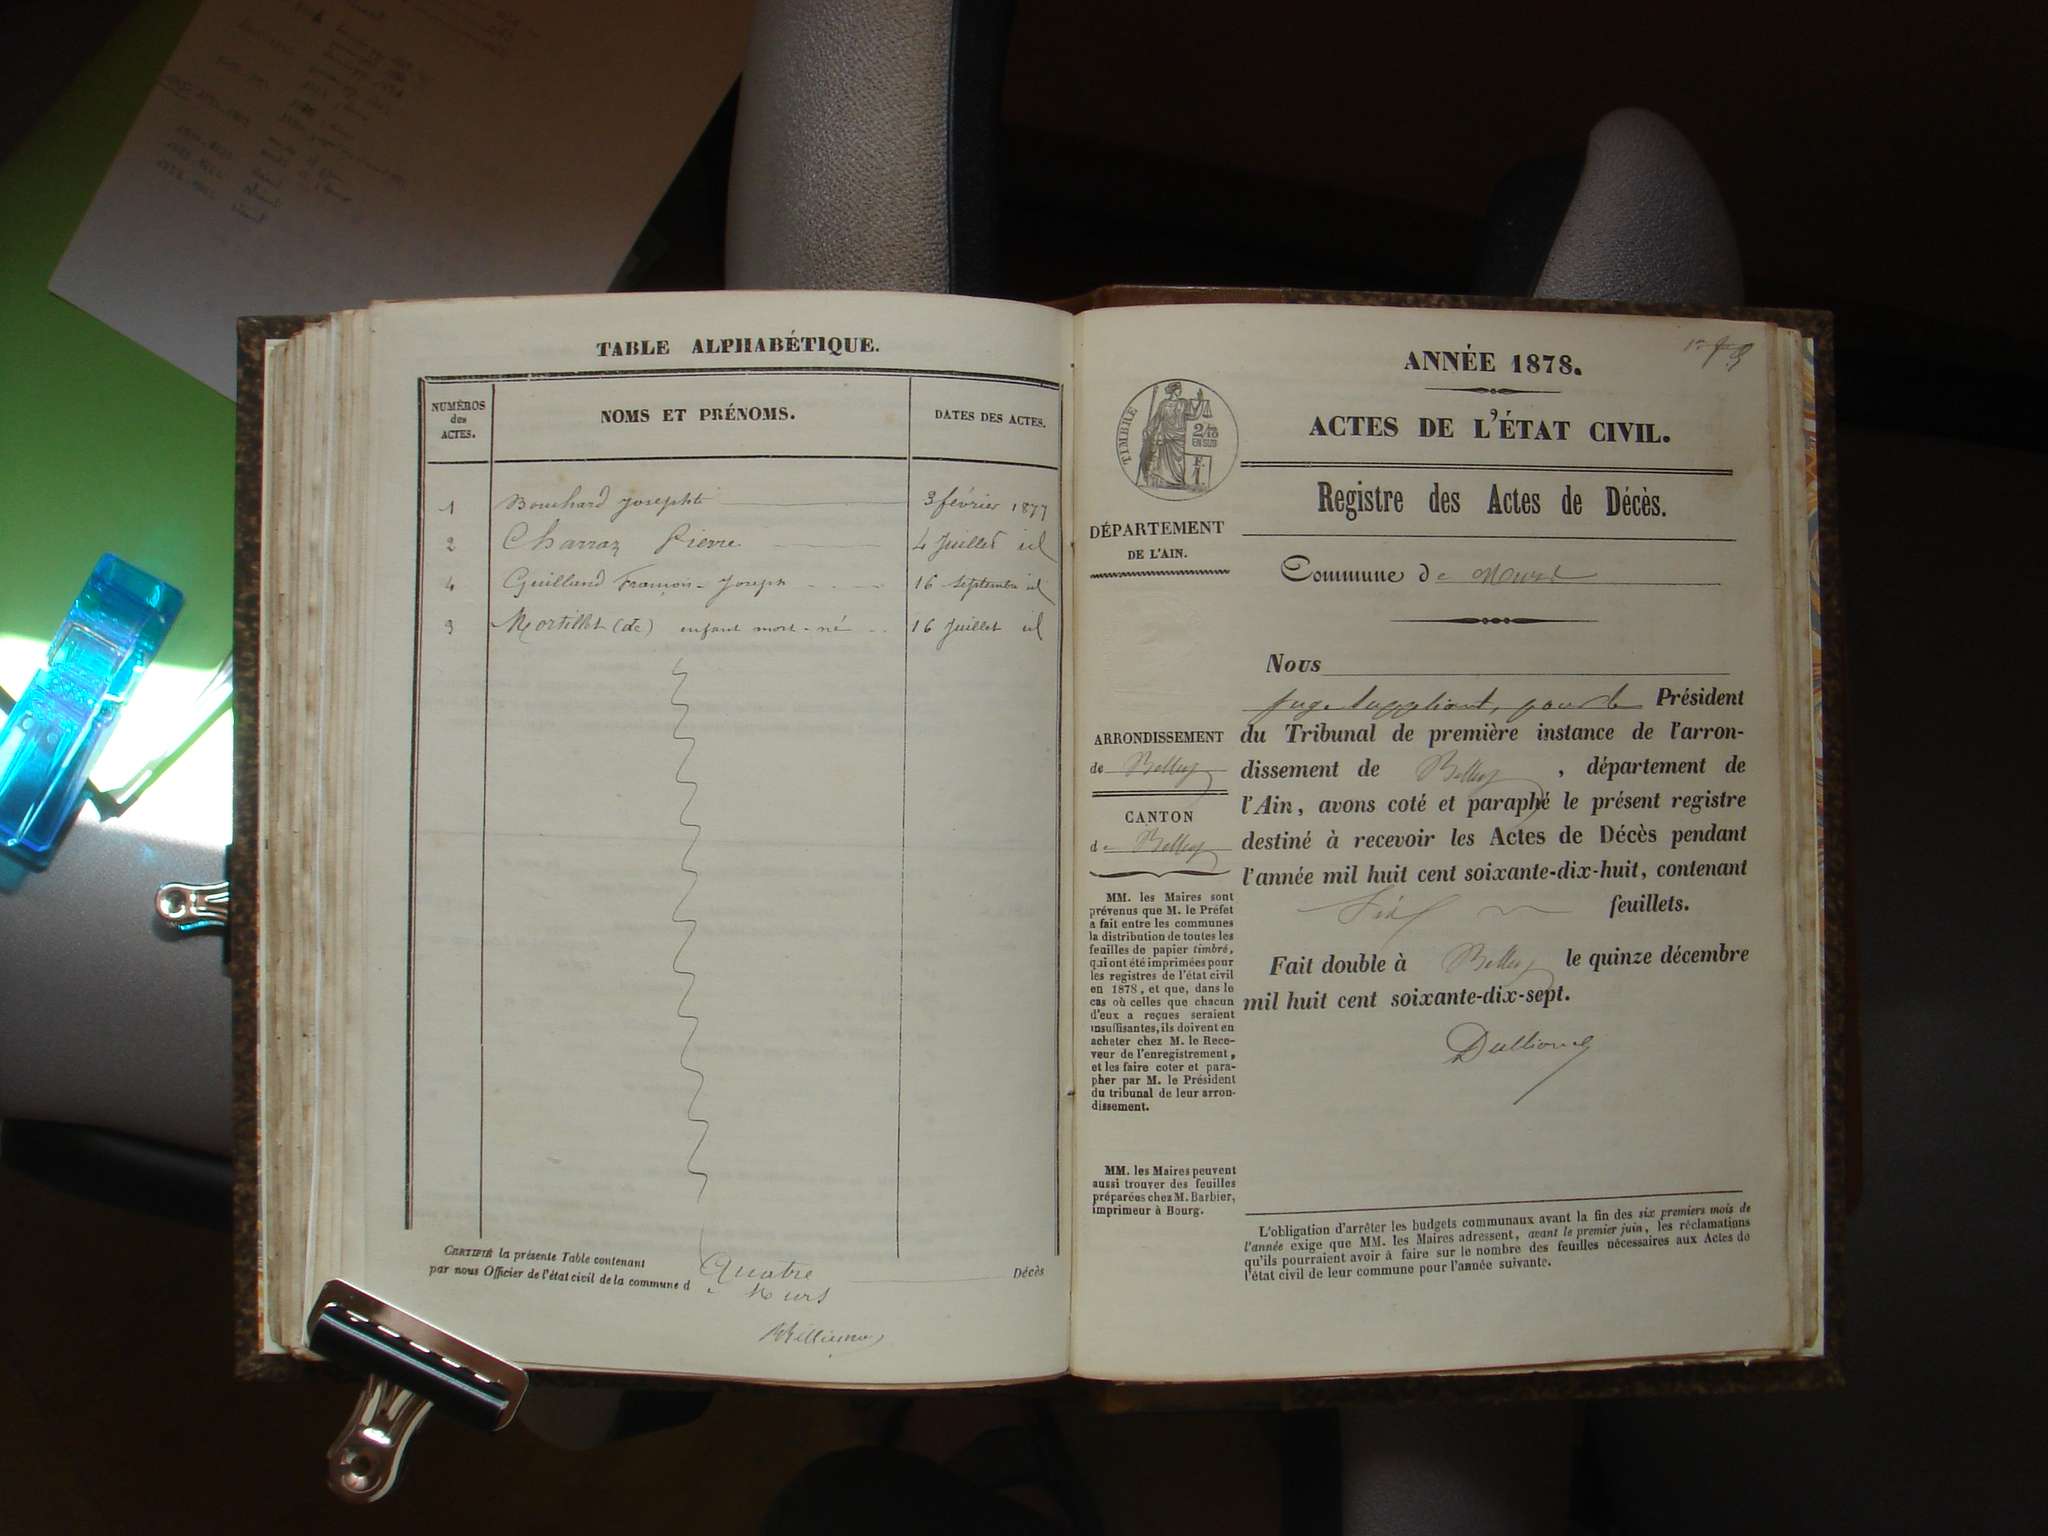 TABLE ALPHABÉTIQUE.
NUMÉROS des ACTES.
NOMS ET PRÉNOMS.
DATES DES ACTES.
1 Bouchard Josephte 3 février 1877
2 Charraz Pierre 4 Juillet id
4 Guilland François-Joseph 16 Septembre id
3 Mortillet (de) enfant mort-né 16 Juillet id
CERTIFIÉ la présente Table contenant Quatre Décès
par nous Officier de l'état civil de la commune de Murs
ANNÉE 1878.
ACTES DE L'ÉTAT CIVIL.
TIMBRE
2/10
EN SUS
F.
1.
Registre des Actes de Décès.
DÉPARTEMENT
DE L'AIN.
Commune de Murs
ARRONDISSEMENT
de Belley
CANTON
de Belley
MM. les Maires sont
prévenus que M. le Préfet
a fait entre les communes
la distribution de toutes les
feuilles de papier timbré,
qui ont été imprimées pour
les registres de l'état civil
en 1878, et que, dans le
cas où celles que chacun
d'eux a reçues seraient
insuffisantes, ils doivent en
acheter chez M. le Rece-
veur de l'enregistrement,
et les faire coter et para-
pher par M. le Président
du tribunal de leur arron-
dissement.
MM. les Maires peuvent
aussi trouver des feuilles
préparées chez M. Barbier,
imprimeur à Bourg.
Nous
juge suppléant, pour le Président
du Tribunal de première instance de l'arron-
dissement de Belley, département de
l'Ain, avons coté et paraphé le présent registre
destiné à recevoir les Actes de Décès pendant
l'année mil huit cent soixante-dix-huit, contenant
feuillets.
Fait double à Belley le quinze décembre
mil huit cent soixante-dix-sept.
L'obligation d'arrêter les budgets communaux avant la fin des six premiers mois de
l'année exige que MM. les Maires adressent, avant le premier juin, les réclamations
qu'ils pourraient avoir à faire sur le nombre des feuilles nécessaires aux Actes de
l'état civil de leur commune pour l'année suivante.